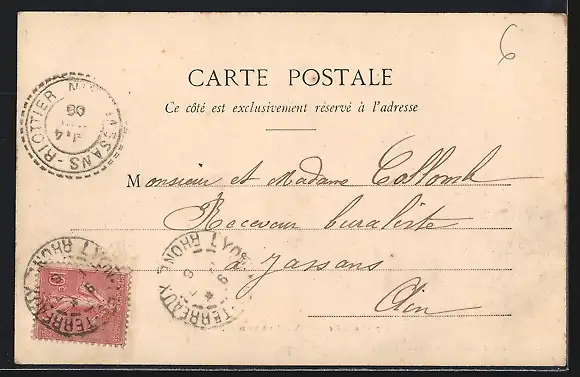 6
CARTE POSTALE
Ce côté est exclusivement réservé à l'adresse
JASSANS-RIOTTIER
Monsieur et Madame Collomb
Receveur buraliste
à Jassans
Ain
LYON TERREAUX RHÔNE
LYON TERREAUX RHÔNE
10